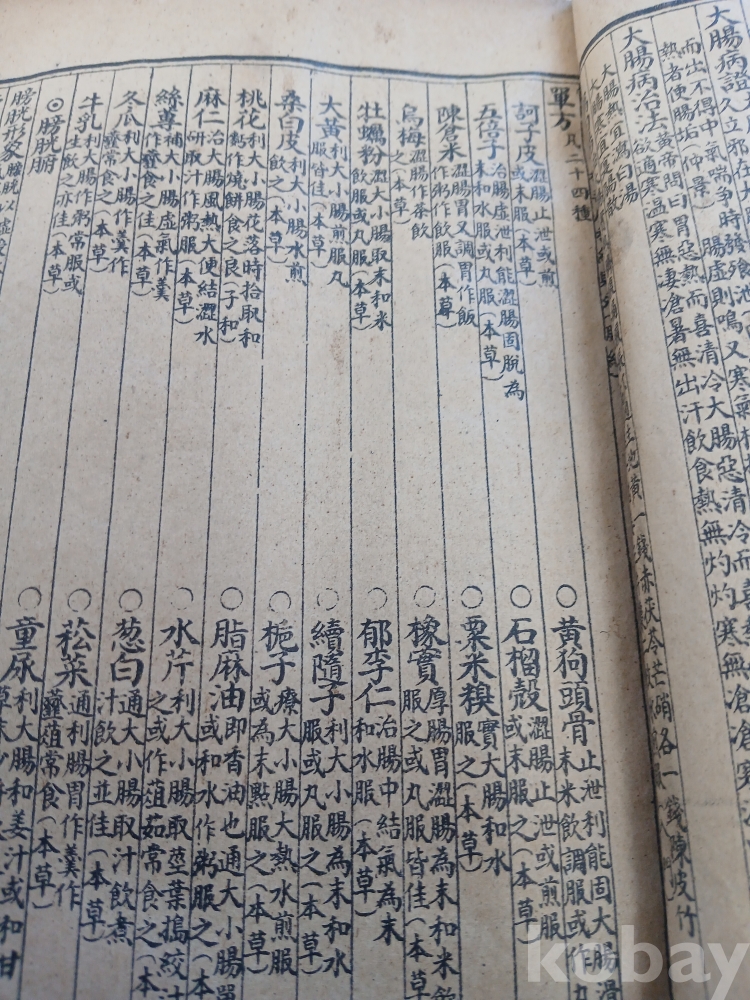 大腸病證
久立邪在
而出不得中氣喘爭
腸虛則鳴又寒氣
熱者便腸垢(仲景)
大腸病治法
黃帝問曰胃惡熱而喜清冷大腸惡清冷而
欲適寒溫寒無凄滄暑無出汗飲食熱無灼灼寒無滄滄寒
單方
凡二十四種
訶子皮
澀腸止泄或煎
或末服(本草)
五倍子
治腸虛泄利能澀腸固脫為
末和水服或丸服(本草)
陳倉米
澀腸胃又調胃作飯
粥作飲服(本草)
烏梅
澀腸作茶飲
之(本草)
牡蠣粉
澀大小腸取末和米
飲服或丸服(本草)
大黃
利大小腸煎服丸
服皆佳(本草)
桑白皮
利大小腸水煎
飲之(本草)
桃花
利大小腸花落時拾取和
麪作燒餅食之良(子和)
麻仁
治大腸風熱大便結澀水
研取汁作粥服(本草)
絲蓴
補大小腸虛氣作羹
作虀食之佳(本草)
冬瓜
利大小腸作羹作
虀常食之(本草)
牛乳
利大腸作粥常服或
生飲之亦佳(本草)
◎膀胱腑
膀胱形象
○黃狗頭骨
止泄利能固大腸滑
末米飲調服或作丸
○石榴殼
澀腸止泄或煎服
或末服之(本草)
○粟米糗
實大腸和水
服之(本草)
○橡實
厚腸胃澀腸為末和米飲
服之或丸服皆佳(本草)
○郁李仁
治腸中結氣為末
和水服(本草)
○續隨子
利大小腸為末和水
服或丸服之(本草)
○梔子
療大小腸大熱水煎服
或為末點服之(本草)
○脂麻油
即香油也通大小腸單
或和水作粥服之(本草)
○水芹
利大小腸取莖葉搗絞汁
之或作葅茹常食之(本
○葱白
通大小腸取汁飲煮
汁飲之並佳(本草)
○菘菜
通利腸胃作羹作
虀葅常食(本草)
○童尿
利大腸和姜汁或和甘
kobay